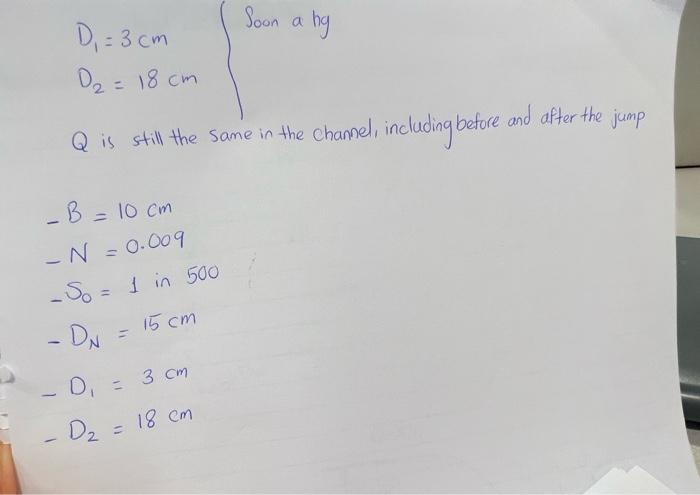 D₁ = 3 cm
Soon a hg
D₂ = 18 cm
Q is still the same in the channel, including before and after the jump
- B = 10 cm
- N = 0.009
- S₀ = 1 in 500
- D_N = 15 cm
- D₁ = 3 cm
- D₂ = 18 cm